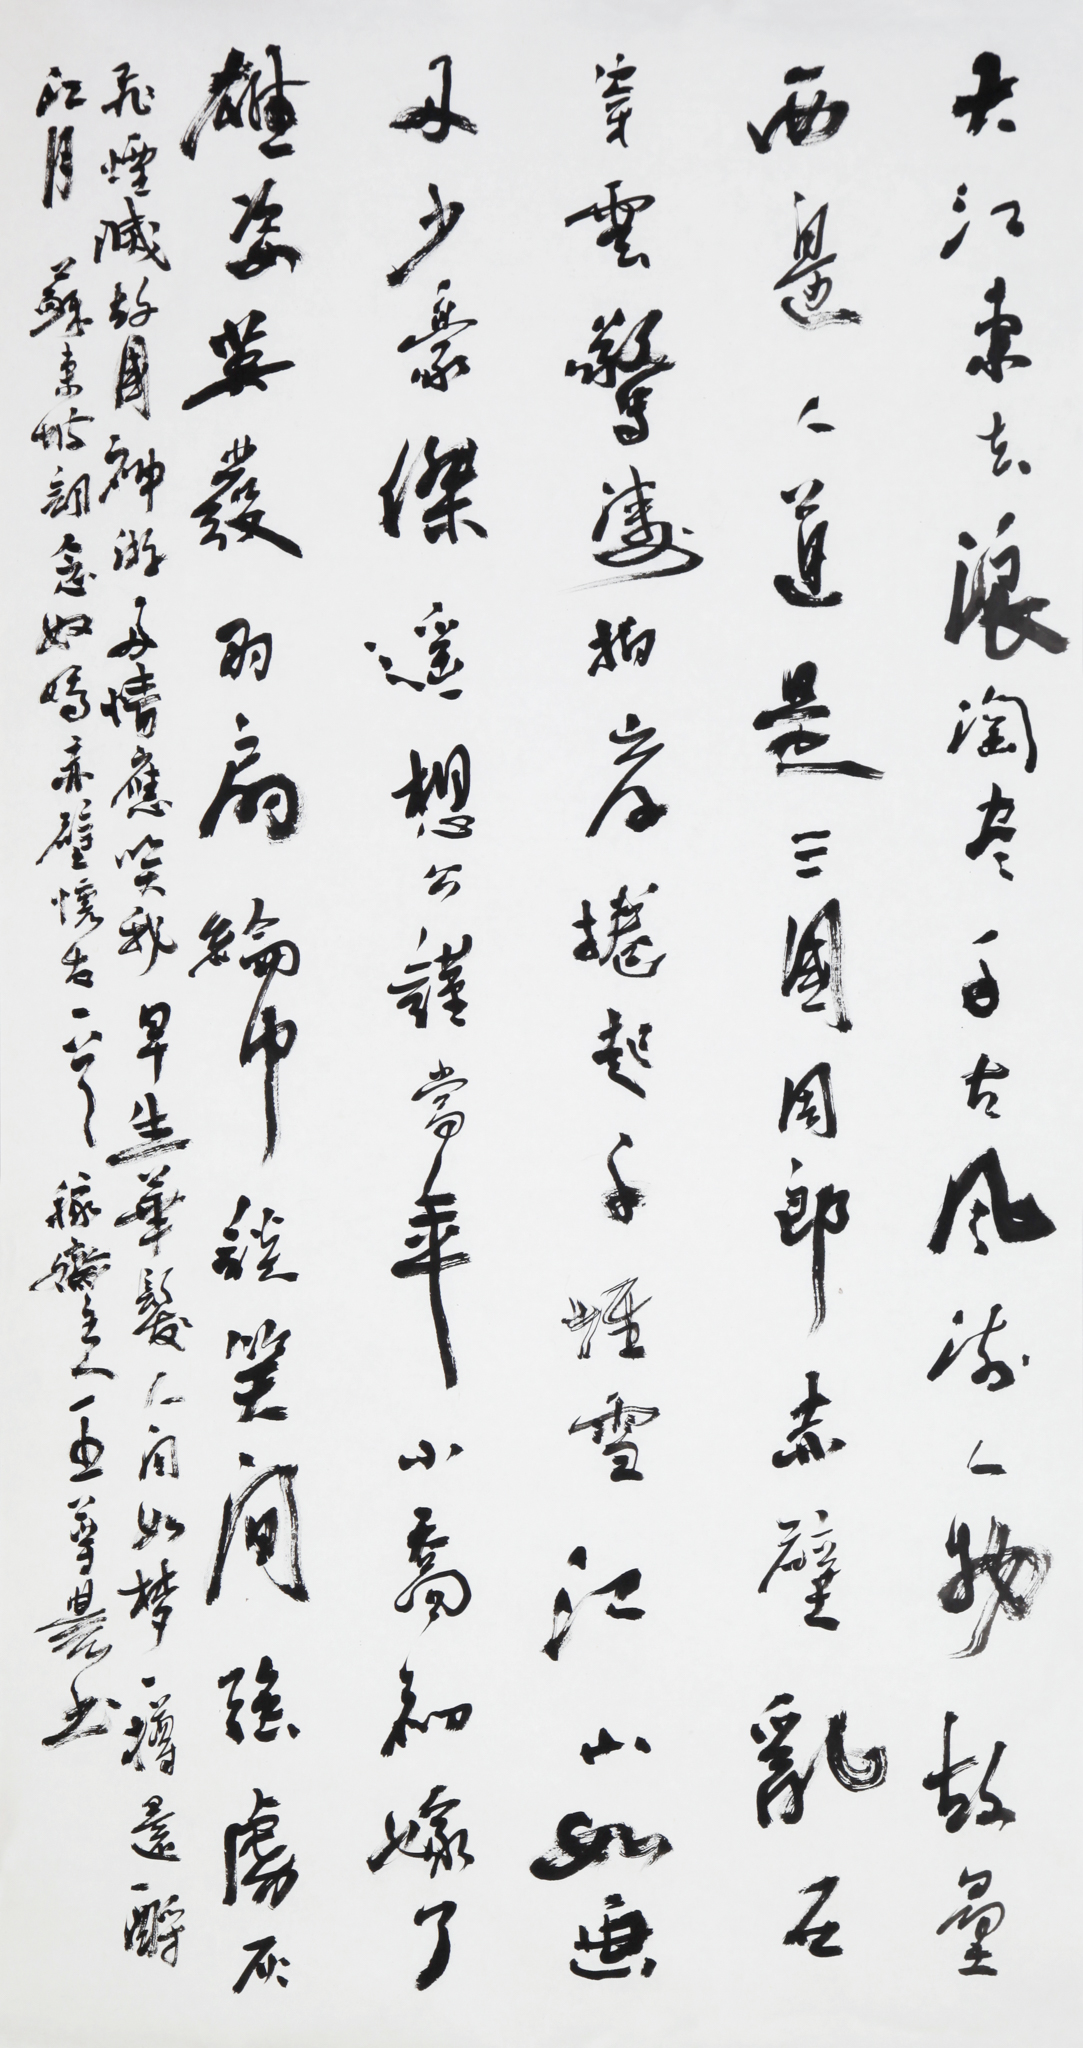 大江東去浪淘尽千古風流人物故壘
西邊人道是三國周郎赤壁亂石
穿雲驚濤拍岸捲起千堆雪江山如畫
一時多少豪傑遙想公謹當年小喬初嫁了
雄姿英發羽扇綸巾談笑間強虜灰
飛煙滅故國神游多情應笑我早生華髮人間如梦一樽還酹
江月 蘇東坡詞念奴嬌赤壁懷古一首 稼齋主人王尊農书